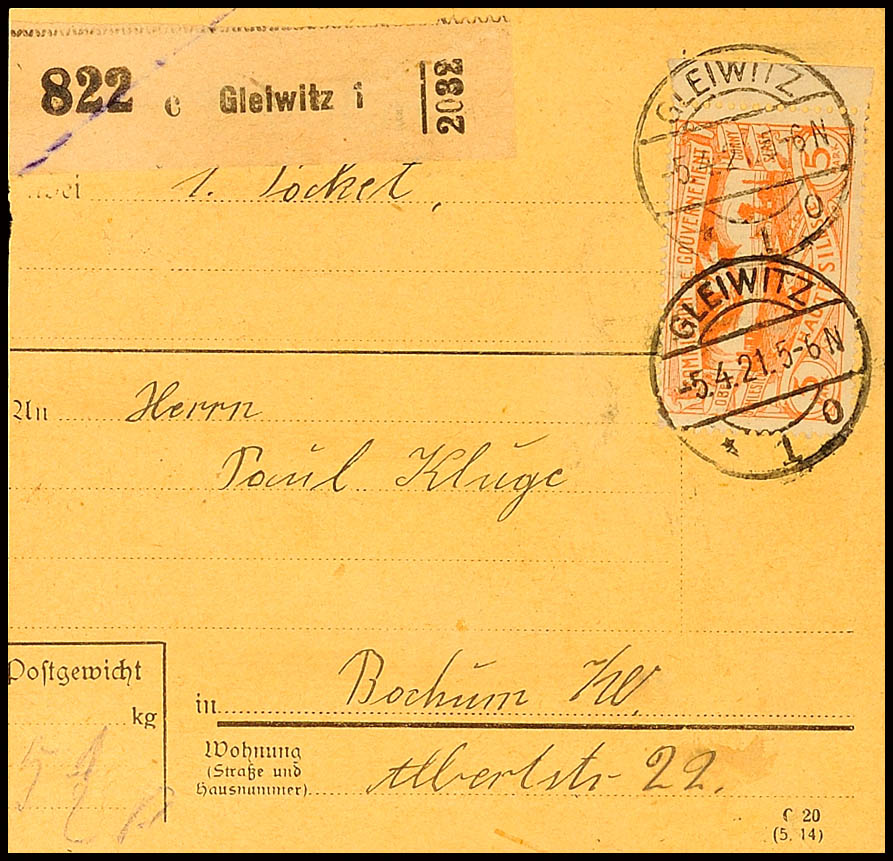 822 c Gleiwitz 1 2032
1. Socket,
GLEIWITZ
5-6N
* 1 o
5 MARK
GOUVERNEMENT
HAUTE SILÉSIE
GLEIWITZ
-5.4.21.5-6N
* 1 o
An Herrn
Paul Kluge
Postgewicht
kg
in Bochum W.
Wohnung
(Straße und
Hausnummer) Albertstr 22.
C 20
(5. 14)